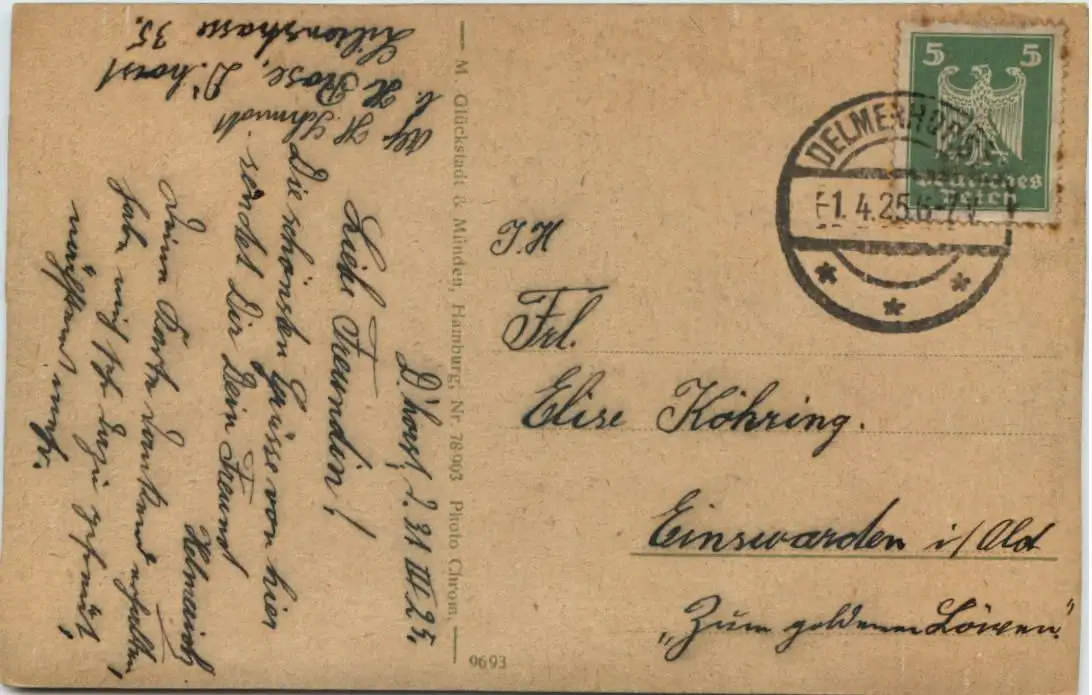 Abs. H. Schmidt
b. H. Rose, D'horst
Lilienstrasse 35.
D'horst, d. 31 III 25.
Liebe Freundin!
Die schönsten Grüsse von hier
sendet Dir Dein Freund
Helmerich
Deine Karte dankend erhalten,
habe mich sehr dazu gefreut,
nächstens mehr.
M. Glückstadt & Münden, Hamburg, Nr. 78903 Photo Chrom.
9693
5 5
Deutsches
Reich
DELMENHORST
-1.4.25.6-7
I H
Frl.
Elise Köhring.
Einswarden i/Old
„Zum goldenen Löwen"